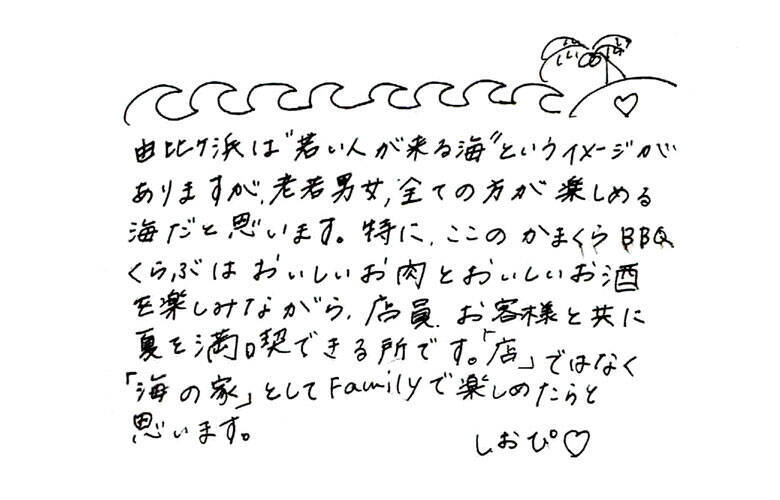 由比ヶ浜は"若い人が来る海"というイメージが
ありますが、老若男女、全ての方が楽しめる
海だと思います。特に、ここのかまくらBBQ
くらぶはおいしいお肉とおいしいお酒
を楽しみながら、店員、お客様と共に
夏を満喫できる所です。「店」ではなく
「海の家」としてFamilyで楽しめたらと
思います。
しおぴ♡